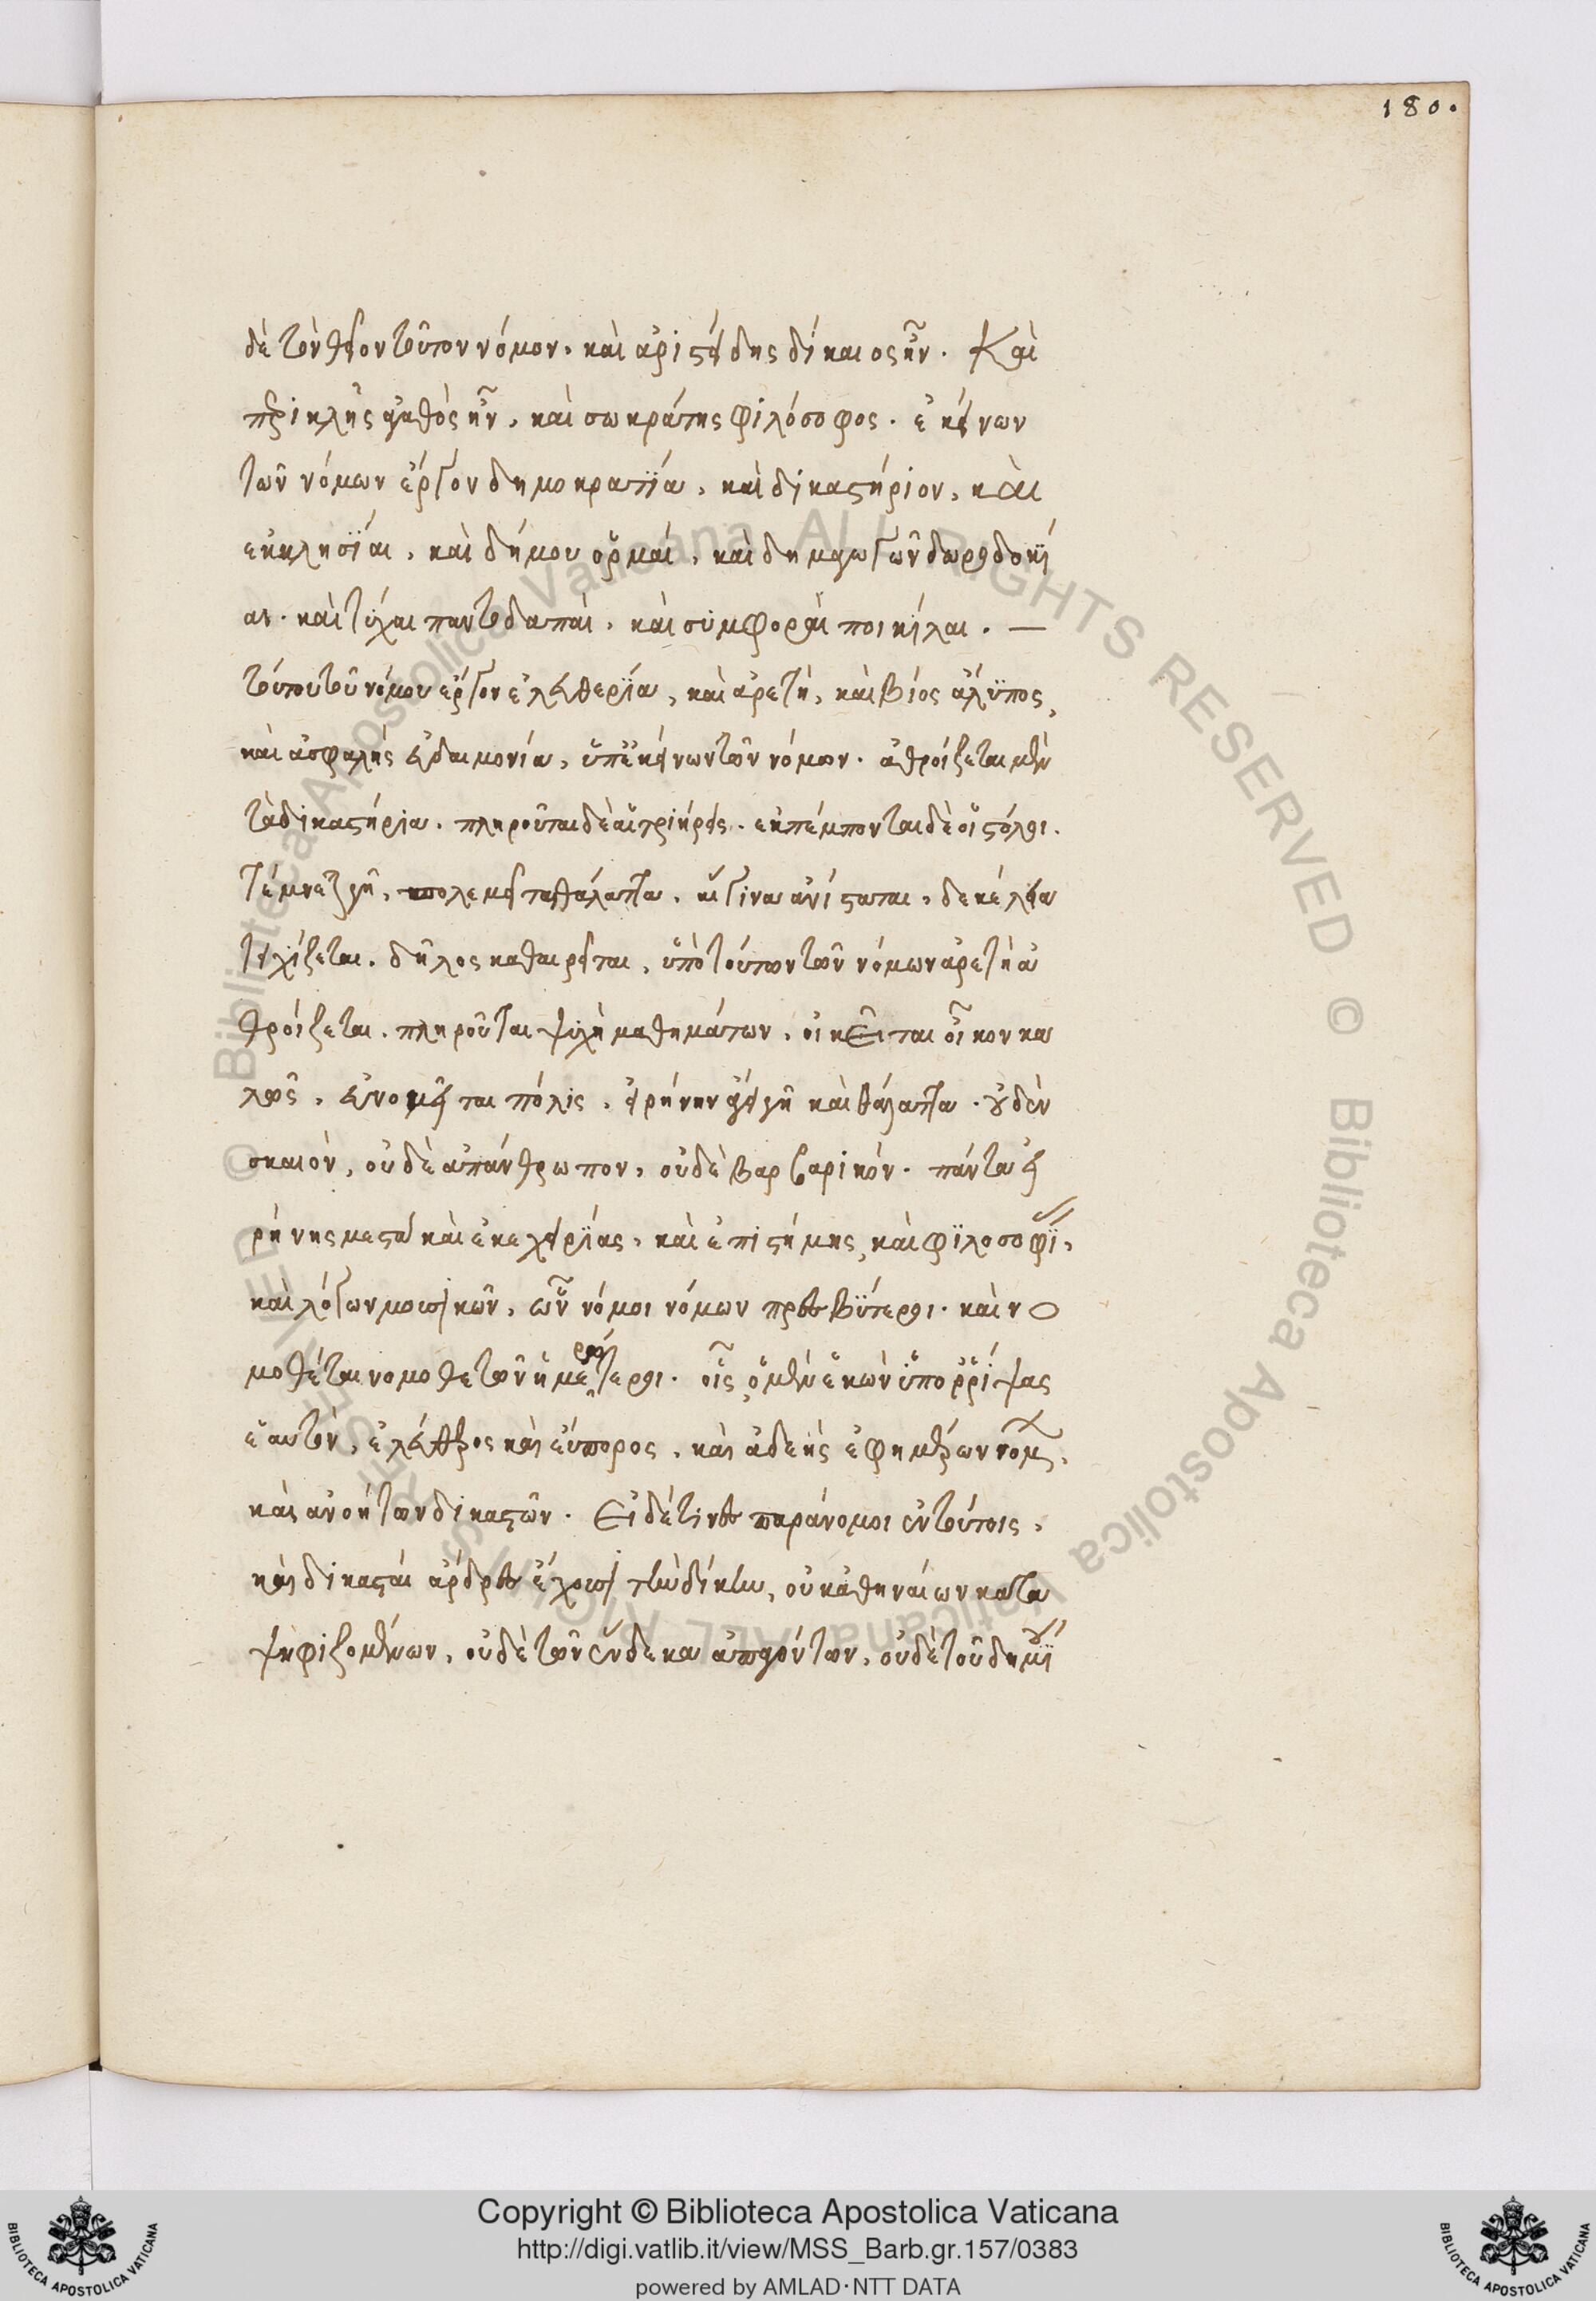 180.
δὲ τὸν θεῖον τοῦτον νόμον, καὶ ἀριστείδης δίκαιος ἦν. Καὶ
περικλῆς ἀγαθὸς ἦν, καὶ σωκράτης φιλόσοφος. ἐκείνων
τῶν νόμων ἔργον δημοκρατία, καὶ δικαστήριον, καὶ
ἐκκλησίαι, καὶ δήμου ὁρμαί, καὶ δημαγωγῶν δωροδοκί
αι. καὶ τύχαι παντοδαπαὶ, καὶ συμφοραὶ ποικίλαι. —
τούτου τοῦ νόμου ἔργον ἐλευθερία, καὶ ἀρετὴ, καὶ βίος ἄλυπος,
καὶ ἀσφαλὴς εὐδαιμονία, ὑπ' ἐκείνων τῶν νόμων. ἀθροίζεται μὲν
τὰ δικαστήρια. πληροῦται δὲ αἱ τριήρεις. ἐκπέμπονται δὲ οἱ στόλοι.
τέμνεται γῆ, πολεμεῖται θάλαττα. αἴγινα ἀνίσταται, δεκέλεια
τειχίζεται. δῆλος καθαιρεῖται, ὑπὸ τούτων τῶν νόμων ἀρετὴ ἀ
θροίζεται. πληροῦται ψυχὴ μαθημάτων. οἰκεῖται οἶκον κα
λῶς. εὐνομεῖται πόλις. εἰρήνην ἄγει γῆ καὶ θάλαττα. οὐδὲν
σκαιὸν, οὐδὲ ἀπάνθρωπον, οὐδὲ βαρβαρικόν. πάντα εἰ
ρήνης μεστὰ καὶ ἐκεχειρίας, καὶ ἐπιστήμης, καὶ φιλοσοφίας,
καὶ λόγων μουσικῶν. ὦν νόμοι νόμων πρεσβύτεροι. καὶ νο
μοθέται νομοθετῶν ἡμερώτεροι. οἷς ὁ μὲν ἑκὼν ὑπορρίψας
ἑαυτὸν, ἐλεύθερος καὶ εὔπορος, καὶ ἀδεὴς ἐφημέρων νόμων,
καὶ ἀνοήτων δικαστῶν. Εἰ δέ τινες παράνομοι ἐν τούτοις,
καὶ δικασταὶ ἄρδρες ἔχουσι τὴν δίκην, οὐκ ἀθηναίων κατα
ψηφιζομένων, οὐδὲ τῶν ἕνδεκα ἀπαγόντων, οὐδὲ τοῦ δημίου
Copyright © Biblioteca Apostolica Vaticana
http://digi.vatlib.it/view/MSS_Barb.gr.157/0383
powered by AMLAD·NTT DATA